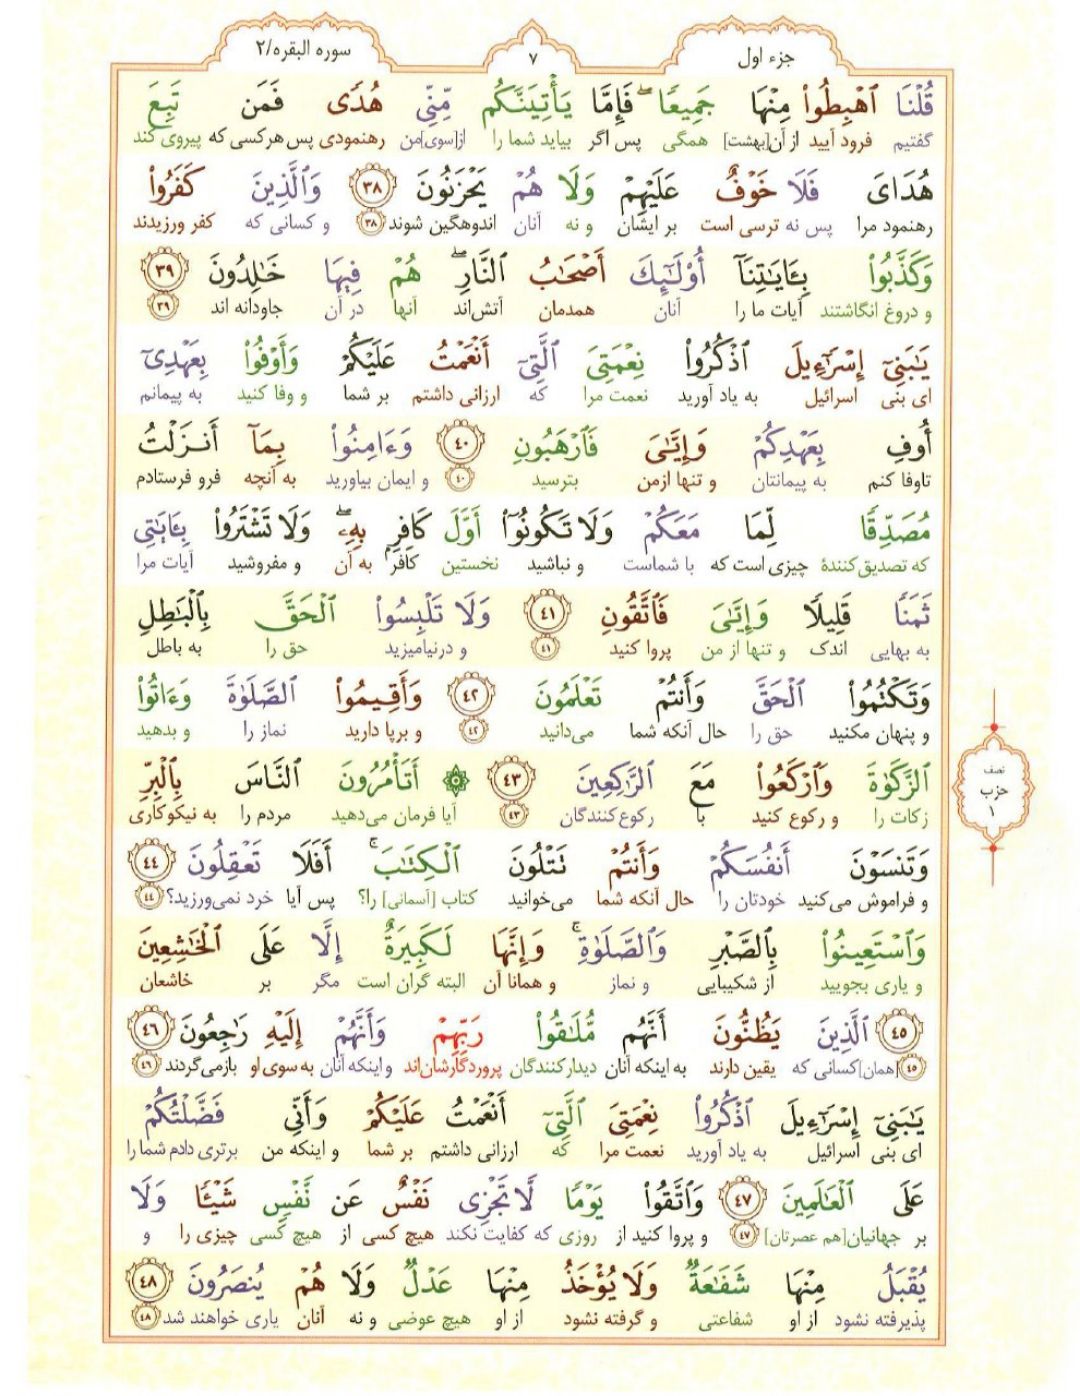 جزء اول
٧
سوره البقره/٢
قُلْنَا ٱهْبِطُوا۟ مِنْهَا جَمِيعًۭا ۖ فَإِمَّا يَأْتِيَنَّكُم مِّنِّى هُدًۭى فَمَن تَبِعَ
گفتیم فرود آیید از آن[بهشت] همگی پس اگر بیاید شما را از[سوی]من رهنمودی پس هرکسی که پیروی کند
هُدَاىَ فَلَا خَوْفٌ عَلَيْهِمْ وَلَا هُمْ يَحْزَنُونَ ٣٨ وَٱلَّذِينَ كَفَرُوا۟
رهنمود مرا پس نه ترسی است بر ایشان و نه آنان اندوهگین شوند ٣٨ و کسانی که کفر ورزیدند
وَكَذَّبُوا۟ بِـَٔايَـٰتِنَآ أُو۟لَـٰٓئِكَ أَصْحَـٰبُ ٱلنَّارِ ۖ هُمْ فِيهَا خَـٰلِدُونَ ٣٩
و دروغ انگاشتند آیات ما را آنان همدمان آتش‌اند آنها در آن جاودانه اند ٣٩
يَـٰبَنِىٓ إِسْرَٰٓءِيلَ ٱذْكُرُوا۟ نِعْمَتِىَ ٱلَّتِىٓ أَنْعَمْتُ عَلَيْكُمْ وَأَوْفُوا۟ بِعَهْدِىٓ
ای بنی اسرائیل به یاد آورید نعمت مرا که ارزانی داشتم بر شما و وفا کنید به پیمانم
أُوفِ بِعَهْدِكُمْ وَإِيَّـٰىَ فَٱرْهَبُونِ ٤٠ وَءَامِنُوا۟ بِمَآ أَنزَلْتُ
تاوفا کنم به پیمانتان و تنها ازمن بترسید ٤٠ و ایمان بیاورید به آنچه فرو فرستادم
مُصَدِّقًۭا لِّمَا مَعَكُمْ وَلَا تَكُونُوٓا۟ أَوَّلَ كَافِرٍۭ بِهِۦ ۖ وَلَا تَشْتَرُوا۟ بِـَٔايَـٰتِى
که تصدیق‌کنندهٔ چیزی است که با شماست و نباشید نخستین کافر به آن و مفروشید آیات مرا
ثَمَنًۭا قَلِيلًۭا وَإِيَّـٰىَ فَٱتَّقُونِ ٤١ وَلَا تَلْبِسُوا۟ ٱلْحَقَّ بِٱلْبَـٰطِلِ
به بهایی اندک و تنها از من پروا کنید ٤١ و درنیامیزید حق را به باطل
وَتَكْتُمُوا۟ ٱلْحَقَّ وَأَنتُمْ تَعْلَمُونَ ٤٢ وَأَقِيمُوا۟ ٱلصَّلَوٰةَ وَءَاتُوا۟
و پنهان مکنید حق را حال آنکه شما می‌دانید ٤٢ و برپا دارید نماز را و بدهید
ٱلزَّكَوٰةَ وَٱرْكَعُوا۟ مَعَ ٱلرَّٰكِعِينَ ٤٣ ۞ أَتَأْمُرُونَ ٱلنَّاسَ بِٱلْبِرِّ
زکات را و رکوع کنید با رکوع‌کنندگان ٤٣ آیا فرمان می‌دهید مردم را به نیکوکاری
نصف
حزب
١
وَتَنسَوْنَ أَنفُسَكُمْ وَأَنتُمْ تَتْلُونَ ٱلْكِتَـٰبَ ۚ أَفَلَا تَعْقِلُونَ ٤٤
و فراموش می‌کنید خودتان را حال آنکه شما می‌خوانید کتاب [آسمانی] را؟ پس آیا خرد نمی‌ورزید؟ ٤٤
وَٱسْتَعِينُوا۟ بِٱلصَّبْرِ وَٱلصَّلَوٰةِ ۚ وَإِنَّهَا لَكَبِيرَةٌ إِلَّا عَلَى ٱلْخَـٰشِعِينَ
و یاری بجویید از شکیبایی و نماز و همانا آن البته گران است مگر بر خاشعان
٤٥ ٱلَّذِينَ يَظُنُّونَ أَنَّهُم مُّلَـٰقُوا۟ رَبِّهِمْ وَأَنَّهُمْ إِلَيْهِ رَٰجِعُونَ ٤٦
٤٥ [همان]کسانی که یقین دارند به اینکه آنان دیدارکنندگان پروردگارشان‌اند و اینکه آنان به سوی او بازمی‌گردند ٤٦
يَـٰبَنِىٓ إِسْرَٰٓءِيلَ ٱذْكُرُوا۟ نِعْمَتِىَ ٱلَّتِىٓ أَنْعَمْتُ عَلَيْكُمْ وَأَنِّى فَضَّلْتُكُمْ
ای بنی اسرائیل به یاد آورید نعمت مرا که ارزانی داشتم بر شما و اینکه من برتری دادم شما را
عَلَى ٱلْعَـٰلَمِينَ ٤٧ وَٱتَّقُوا۟ يَوْمًۭا لَّا تَجْزِى نَفْسٌ عَن نَّفْسٍۢ شَيْـًۭٔا وَلَا
بر جهانیان[هم عصرتان] ٤٧ و پروا کنید از روزی که کفایت نکند هیچ کسی از هیچ کسی چیزی را و
يُقْبَلُ مِنْهَا شَفَـٰعَةٌۭ وَلَا يُؤْخَذُ مِنْهَا عَدْلٌۭ وَلَا هُمْ يُنصَرُونَ ٤٨
پذیرفته نشود از او شفاعتی و گرفته نشود از او هیچ عوضی و نه آنان یاری خواهند شد ٤٨